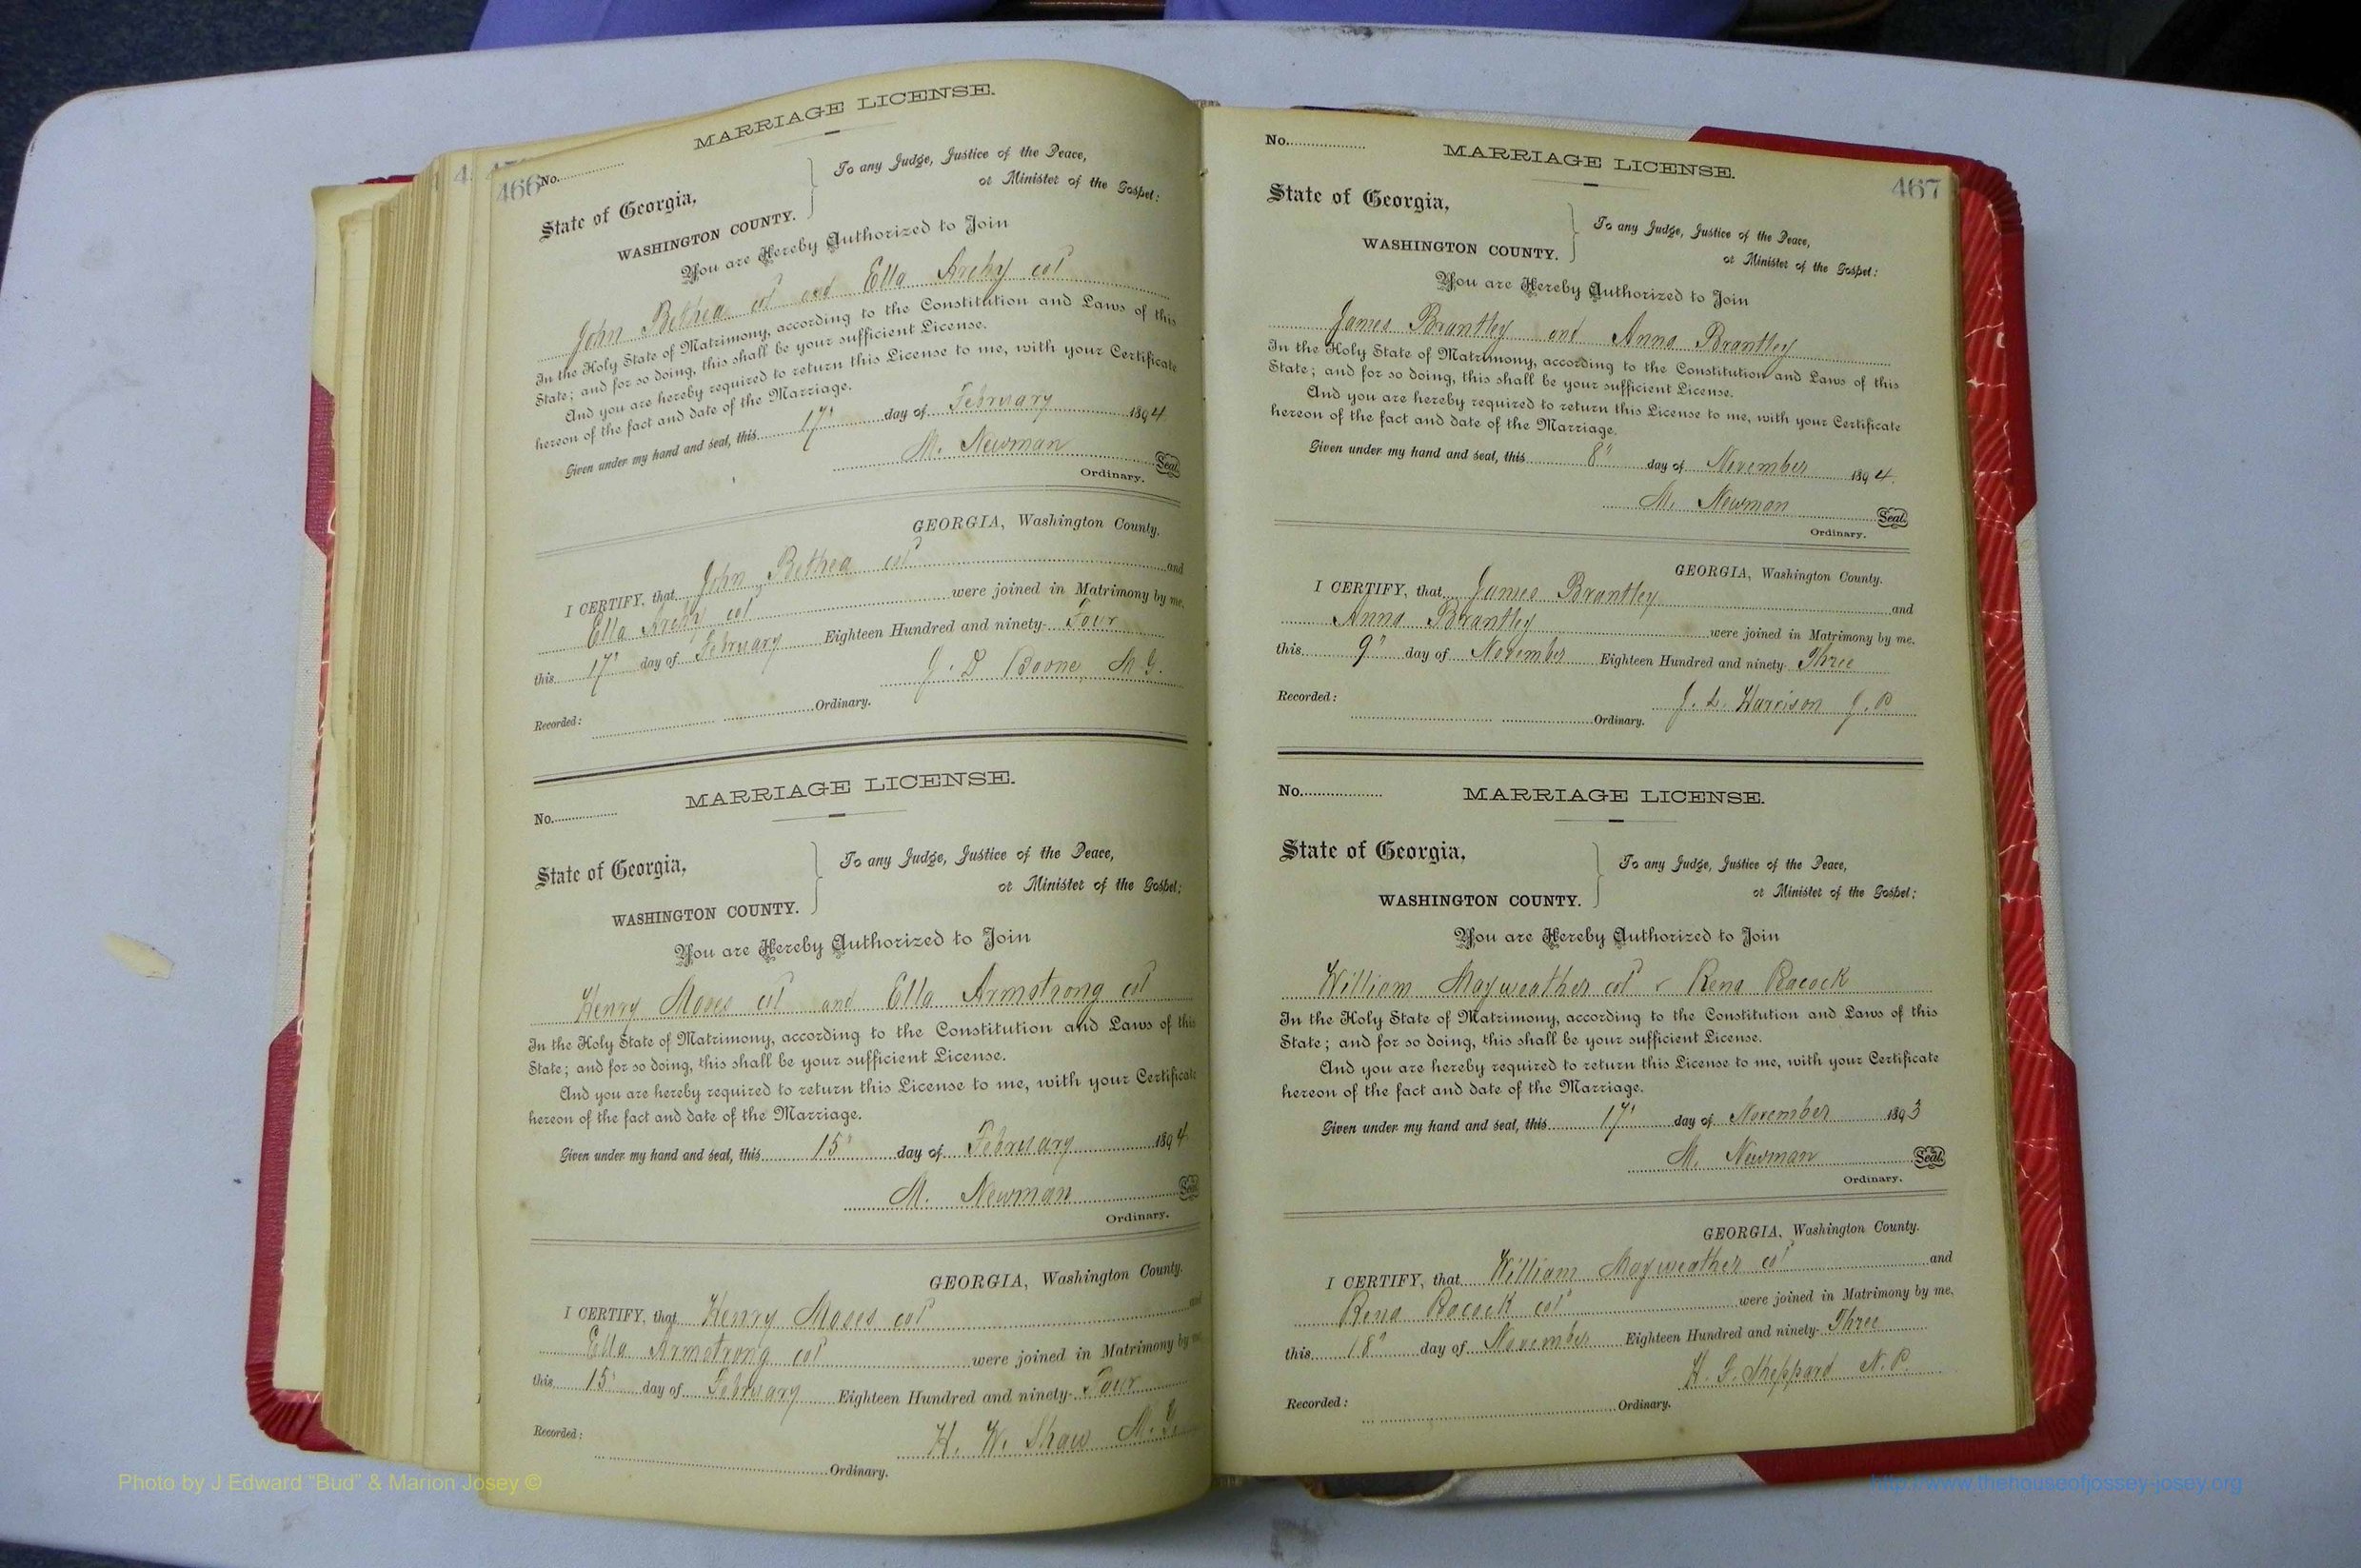 MARRIAGE LICENSE.
466 No.
State of Georgia,
WASHINGTON COUNTY.
To any Judge, Justice of the Peace,
or Minister of the Gospel:
You are Hereby Authorized to Join
John Bethea col and Ella Archy col
In the Holy State of Matrimony, according to the Constitution and Laws of this
State; and for so doing, this shall be your sufficient License.
And you are hereby required to return this License to me, with your Certificate
hereon of the fact and date of the Marriage.
Given under my hand and seal, this 17" day of February 1894
M. Newman Seal
Ordinary.
GEORGIA, Washington County.
I CERTIFY, that John Bethea col and
Ella Archy col were joined in Matrimony by me,
this 17" day of February Eighteen Hundred and ninety- Four
J. D Boone M G.
Recorded: Ordinary.
MARRIAGE LICENSE.
No.
State of Georgia,
WASHINGTON COUNTY.
To any Judge, Justice of the Peace,
or Minister of the Gospel;
You are Hereby Authorized to Join
Henry Moses col and Ella Armstrong col
In the Holy State of Matrimony, according to the Constitution and Laws of this
State; and for so doing, this shall be your sufficient License.
And you are hereby required to return this License to me, with your Certificate
hereon of the fact and date of the Marriage.
Given under my hand and seal, this 15" day of February 1894
M. Newman Seal
Ordinary.
GEORGIA, Washington County.
I CERTIFY, that Henry Moses col and
Ella Armstrong col were joined in Matrimony by me
this 15" day of February Eighteen Hundred and ninety- Four
H. W. Shaw M. G.
Recorded: Ordinary.
No.
MARRIAGE LICENSE.
467
State of Georgia,
WASHINGTON COUNTY.
To any Judge, Justice of the Peace,
or Minister of the Gospel:
You are Hereby Authorized to Join
James Brantley and Anna Brantley
In the Holy State of Matrimony, according to the Constitution and Laws of this
State; and for so doing, this shall be your sufficient License.
And you are hereby required to return this License to me, with your Certificate
hereon of the fact and date of the Marriage.
Given under my hand and seal, this 8" day of November 1894.
M. Newman Seal.
Ordinary.
GEORGIA, Washington County.
I CERTIFY, that James Brantley and
Anna Brantley were joined in Matrimony by me.
this 9" day of November Eighteen Hundred and ninety- Three
J. L. Harrison J. P
Recorded: Ordinary.
No.
MARRIAGE LICENSE.
State of Georgia,
WASHINGTON COUNTY.
To any Judge, Justice of the Peace,
or Minister of the Gospel;
You are Hereby Authorized to Join
William Mayweather col & Rena Peacock
In the Holy State of Matrimony, according to the Constitution and Laws of this
State; and for so doing, this shall be your sufficient License.
And you are hereby required to return this License to me, with your Certificate
hereon of the fact and date of the Marriage.
Given under my hand and seal, this 17" day of November 1893
M. Newman Seal
Ordinary.
GEORGIA, Washington County.
I CERTIFY, that William Mayweather col and
Rena Pecock col were joined in Matrimony by me,
this 18" day of November Eighteen Hundred and ninety- Three
H. G. Sheppard N. P.
Recorded: Ordinary.
Photo by J Edward "Bud" & Marion Josey ©
http://www.thehouseofjossey-josey.org